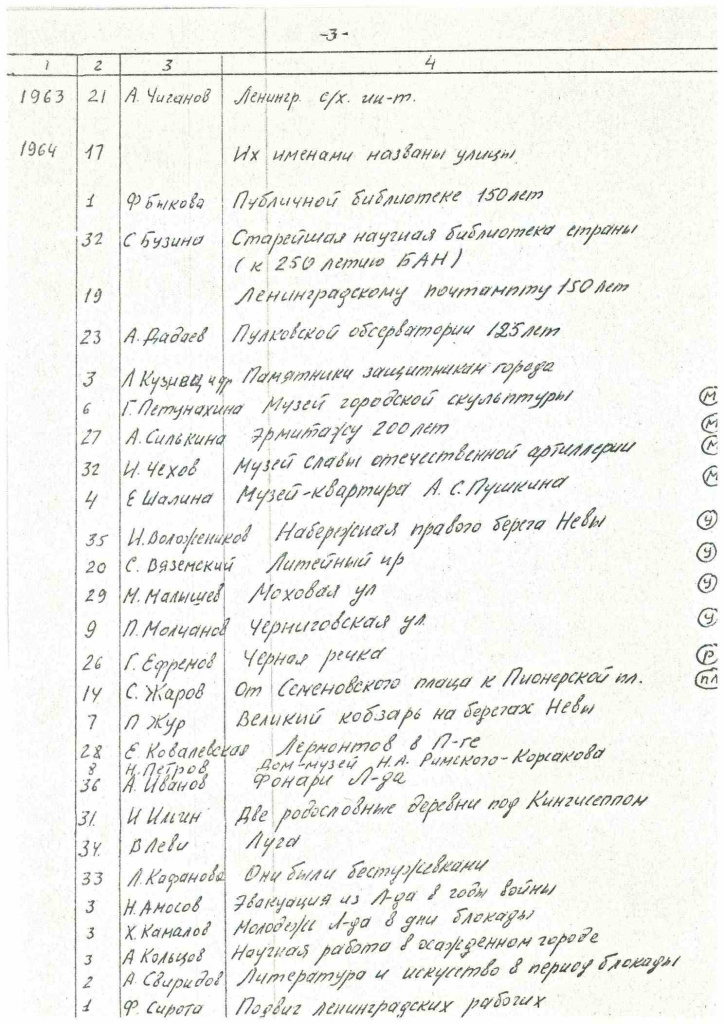 -3-
1 2 3 4
1963 21 А. Чиганов Ленингр. с/х. ин-т.
1964 17 Их именами названы улицы
1 Ф Быкова Публичной библиотеке 150 лет
32 С Бузина Старейшая научная библиотека страны
(к 250 летию БАН)
19 Ленинградскому почтампту 150 лет
23 А. Дадаев Пулковской обсерватории 125 лет
3 Л Кузивец и др Памятники защитникам города
6 Г. Петунахина Музей городской скульптуры М
27 А. Силькина Эрмитажу 200 лет М
32 И. Чехов Музей Славы отечественной артиллерии М
4 Е Шалина Музей-квартира А. С. Пушкина М
35 И. Воложеников Набережная правого берега Невы У
20 С. Вяземский Литейный пр У
29 М. Малышев Моховая ул У
9 П. Молчанов Черниговская ул. У
26 Г. Ефремов Черная речка Р
14 С. Жаров От Семеновского плаца к Пионерской пл. ПЛ
7 П Жур Великий кобзарь на берегах Невы
28 Е. Ковалевская Лермонтов в П-ге
8 Н. Петров Дом-музей Н.А. Римского-Корсакова
36 А. Иванов Фонари Л-да
31. И Ильин Две родословные деревни под Кингисеппом
34. В Леви Луга
33 Л. Кафанова Они были бестужевками
3 Н. Амосов Эвакуация из Л-да в годы войны
3 Х. Камалов Молодежь Л-да в дни блокады
3 А Кольцов Научная работа в осажденном городе
2 А. Свиридов Литература и искусство в период блокады
1 Ф. Сирота Подвиг ленинградских рабочих